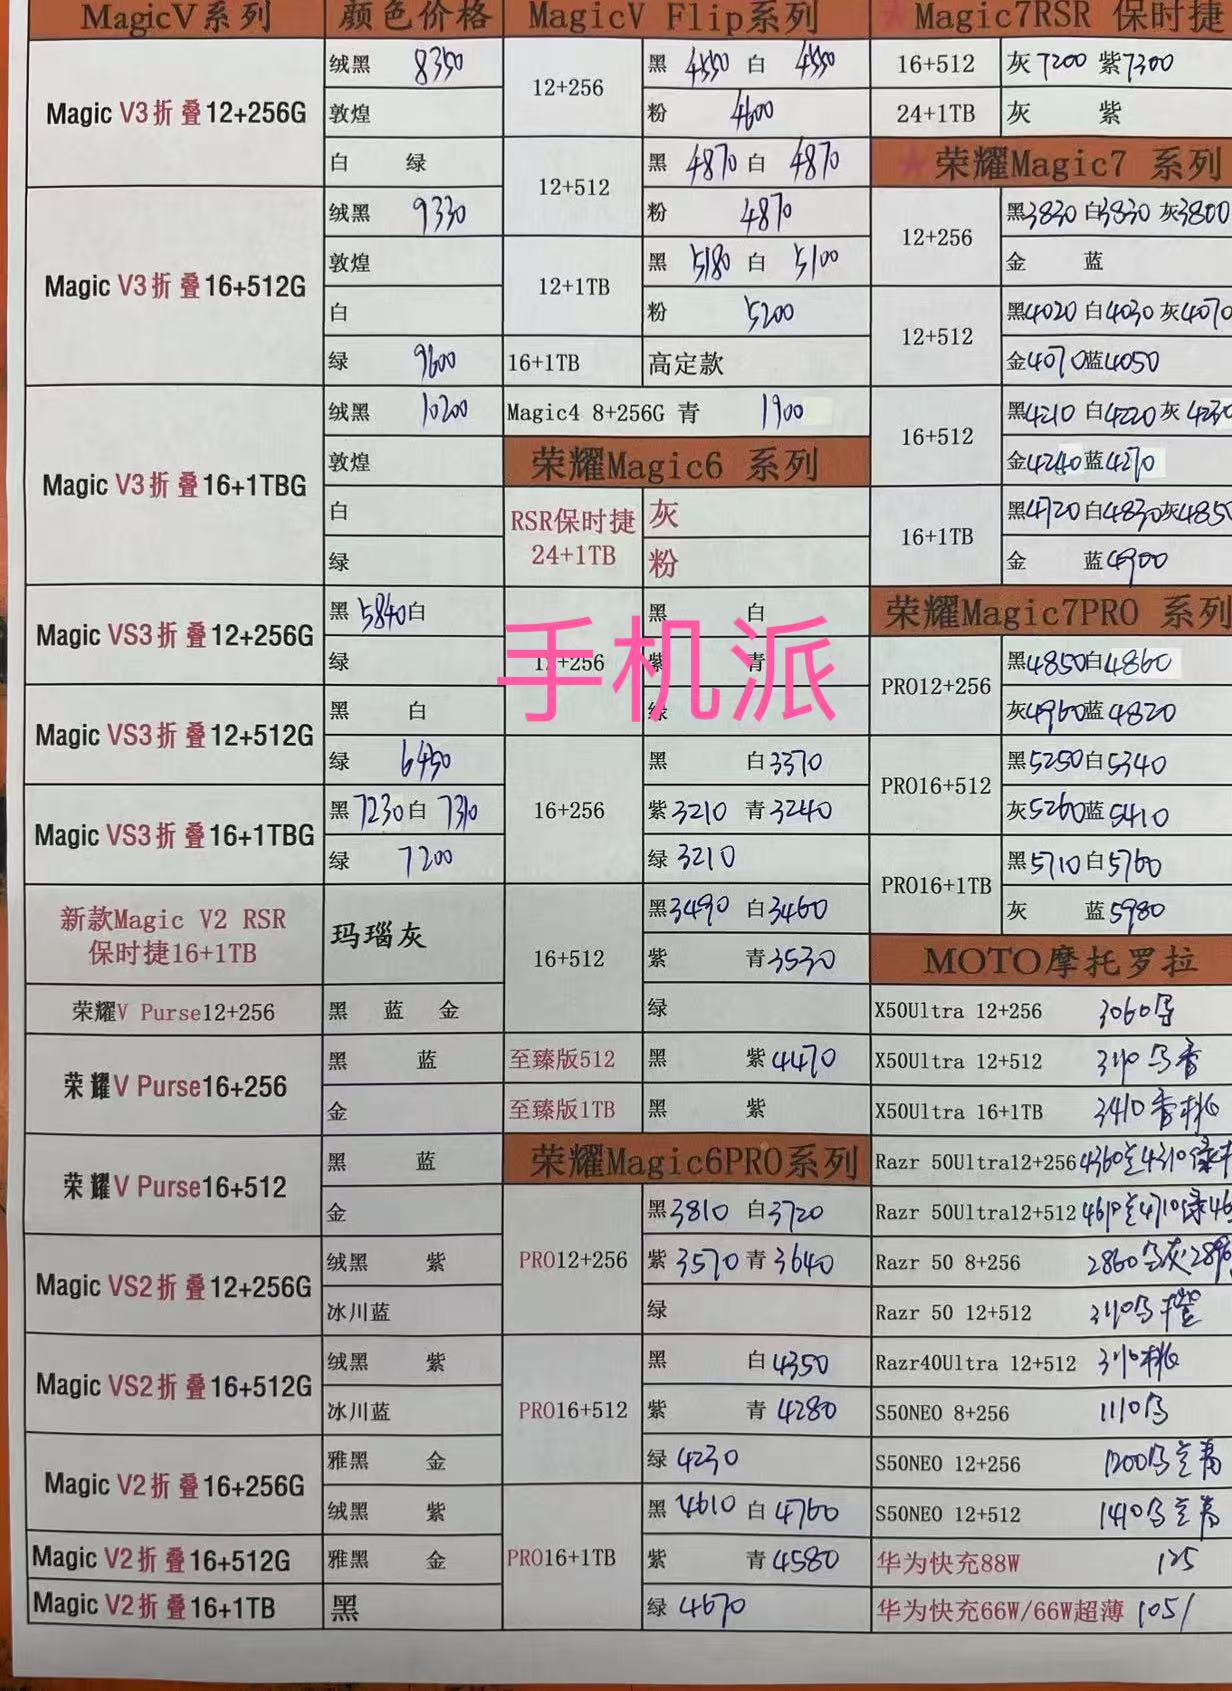 MagicV系列 颜色价格
Magic V3折叠12+256G
绒黑 8350
敦煌
白 绿
Magic V3折叠16+512G
绒黑 9330
敦煌
白
绿 9600
Magic V3折叠16+1TBG
绒黑 10200
敦煌
白
绿
Magic VS3折叠12+256G
黑 5840 白
绿
Magic VS3折叠12+512G
黑 白
绿 6450
Magic VS3折叠16+1TBG
黑 7230 白 7310
绿 7200
新款Magic V2 RSR
保时捷16+1TB
玛瑙灰
荣耀V Purse12+256
黑 蓝 金
荣耀V Purse16+256
黑 蓝
金
荣耀V Purse16+512
黑 蓝
金
Magic VS2折叠12+256G
绒黑 紫
冰川蓝
Magic VS2折叠16+512G
绒黑 紫
冰川蓝
Magic V2折叠16+256G
雅黑 金
绒黑 紫
Magic V2折叠16+512G
雅黑 金
Magic V2折叠16+1TB
黑
MagicV Flip系列
12+256
黑 4550 白 4550
粉 4600
12+512
黑 4870 白 4870
粉 4870
12+1TB
黑 5180 白 5100
粉 5200
16+1TB 高定款
Magic4 8+256G 青 1900
荣耀Magic6 系列
RSR保时捷
24+1TB
灰
粉
12+256
黑 白
紫 青
绿
16+256
黑 白3370
紫3210 青3240
绿3210
16+512
黑3490 白3460
紫 青3530
绿
至臻版512 黑 紫4470
至臻版1TB 黑 紫
荣耀Magic6PRO系列
PRO12+256
黑3810 白3720
紫3570 青3640
绿
PRO16+512
黑 白4350
紫 青4280
绿4230
PRO16+1TB
黑4610 白4760
紫 青4580
绿4670
Magic7RSR 保时捷
16+512 灰7200 紫7300
24+1TB 灰 紫
荣耀Magic7 系列
12+256
黑3830 白3830 灰3800
金 蓝
12+512
黑4020 白4030 灰4070
金4070 蓝4050
16+512
黑4210 白4220 灰4230
金4240 蓝4270
16+1TB
黑4720 白4830 灰4850
金 蓝4900
荣耀Magic7PRO 系列
PRO12+256
黑4850 白4860
灰4960 蓝4820
PRO16+512
黑5250 白5340
灰5260 蓝5410
PRO16+1TB
黑5710 白5760
灰 蓝5980
MOTO摩托罗拉
X50Ultra 12+256
X50Ultra 12+512
X50Ultra 16+1TB
Razr 50Ultra12+256
Razr 50Ultra12+512
Razr 50 8+256
Razr 50 12+512
Razr40Ultra 12+512
S50NEO 8+256
S50NEO 12+256
S50NEO 12+512
华为快充88W 125
华为快充66W/66W超薄 105/
手机派